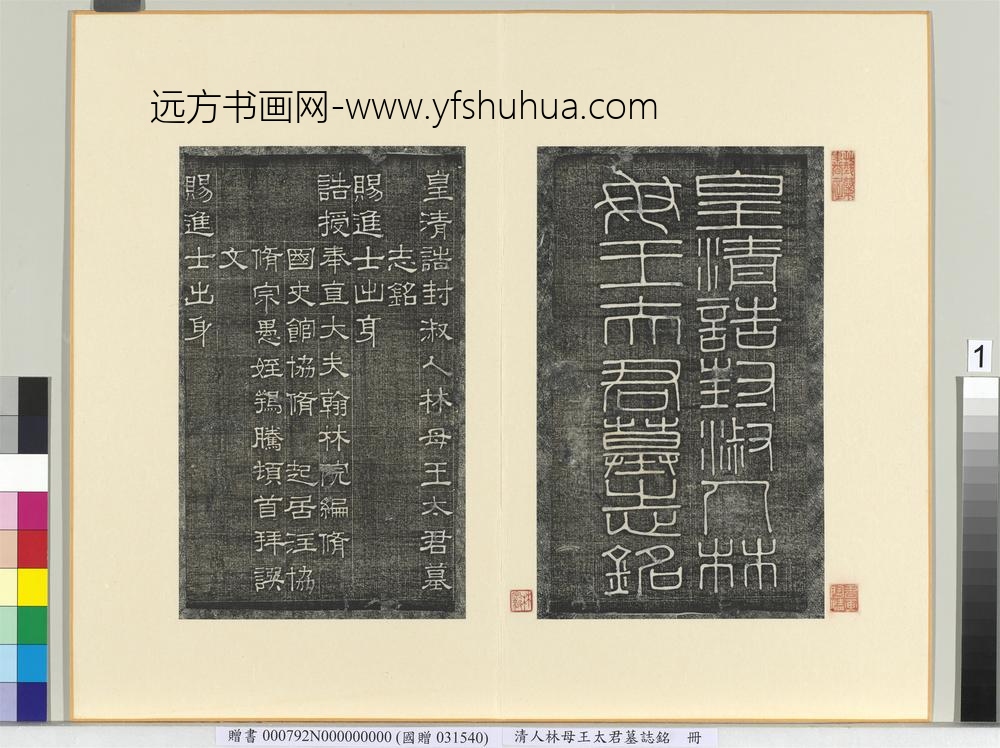 远方书画网-www.yfshuhua.com
皇清誥封淑人林
母王太君墓志銘
皇清誥封淑人林母王太君墓
志銘
賜進士出身
誥授奉直大夫翰林院編脩
國史館協脩 起居注協
脩宗愚姪鶚騰頓首拜譔
文
賜進士出身
1
贈書 000792N000000000 (國贈 031540)
清人林母王太君墓誌銘 冊